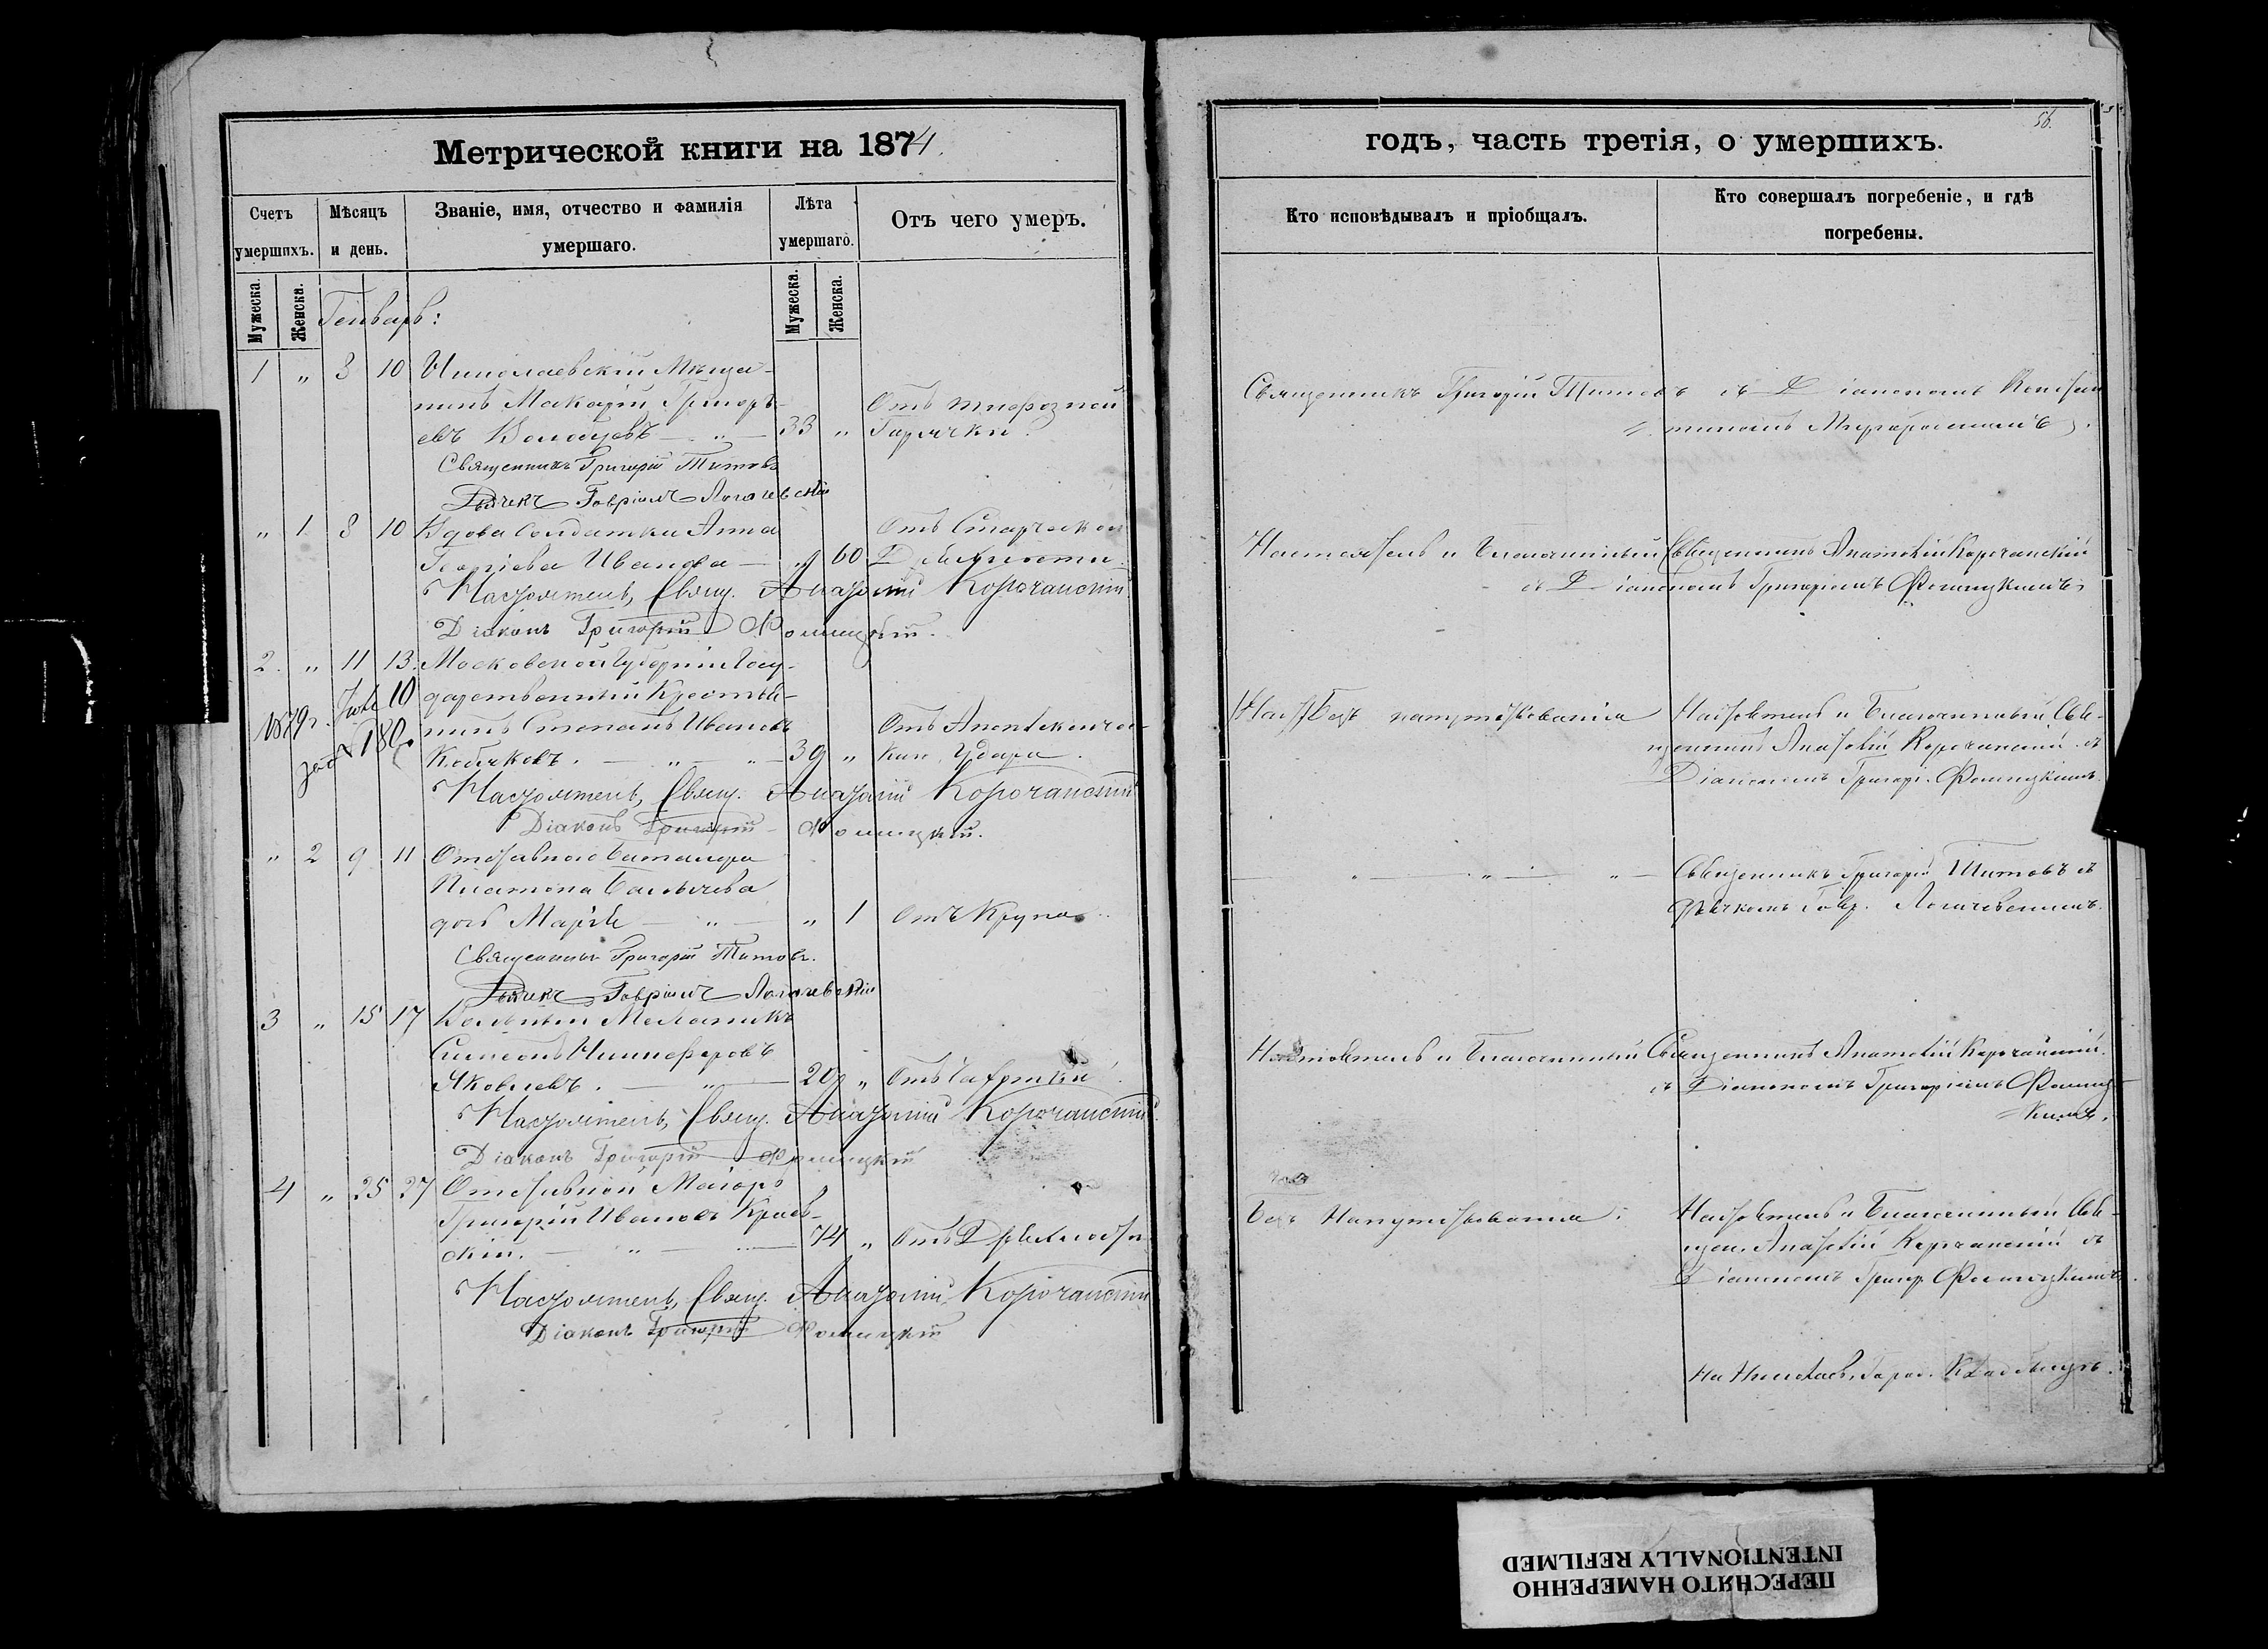 Метрической книги на 1874.
Счетъ умершихъ.
Мѣсяцъ и день.
Званіе, имя, отчество и фамилія умершаго.
Лѣта умершаго.
Отъ чего умеръ.
Мужеска.
Женска.
Мужеска.
Женска.
Генварь:
1 " 8 10 Николаевскій Мѣща-
нинъ Макарій Григорь- Отъ тифозной
евъ 33 " Горячки.
Священникъ Григорій Титовъ
Дьячекъ Гавріилъ
" 1 8 10 Вдова Солдатка Анна Отъ Старческой
Георгіева Иванова — " 60 Дряхлости
Настоятель, Свящ. Анатолій Корочанскій
Діаконъ Григорій Фомицкій.
2. " 11 13. Московской Губерніи Госу-
дарственный Крестья-
нинъ Степанъ Ивановъ Отъ Апоплексиче-
39 " каго Удара.
1879 г. Юля 10
за № 180
Настоятель, Свящ. Анатолій Корочанскій
Діаконъ Григорій Фомицкій.
" 2 9 11 Отставнаго Баталера
Платона
дочь Марія — " — " 1 Отъ Крупа.
Священникъ Григорій Титовъ.
Дьячекъ Гавріилъ
3 " 15 17 Вольный Механикъ
Симеонъ Никифоровъ
Яковлевъ. — " — 29 " Отъ Чахотки.
Настоятель, Свящ. Анатолій Корочанскій.
Діаконъ Григорій Фомицкій
4 " 25 27 Отставной Маіоръ
Григорій Ивановъ Краев-
скій. — " — 74 " Отъ Дряхлости
Настоятель, Свящ. Анатолій Корочанскій
Діаконъ Григорій Фомицкій
56.
годъ, часть третія, о умершихъ.
Кто исповѣдывалъ и пріобщалъ.
Кто совершалъ погребеніе, и гдѣ погребены.
Священникъ Григорій Титовъ съ Діакономъ Констан
тиномъ
Настоятель и Благочинный Священникъ Анатолій Корочанскій
съ Діакономъ Григоріемъ Фомицкимъ
Безъ напутствованія
Настоятель и Благочинный Свя-
щенникъ Анатолій Корочанскій съ
Діакономъ Григорі. Фомицкимъ.
Священникъ Григорій Титовъ съ
Дьячкомъ Гавр.
Настоятель и Благочинный Священникъ Анатолій Корочанскій.
съ Діакономъ Григоріемъ Фомиц-
кимъ.
Безъ Напутствованія:
Настоятель и Благочинный Свя-
щен. Анатолій Корочанскій съ
Діакономъ Григор. Фомицкимъ.
На Николаев. Город. Кладбищѣ.
ПЕРЕСНЯТО НАМЕРЕННО
INTENTIONALLY REFILMED